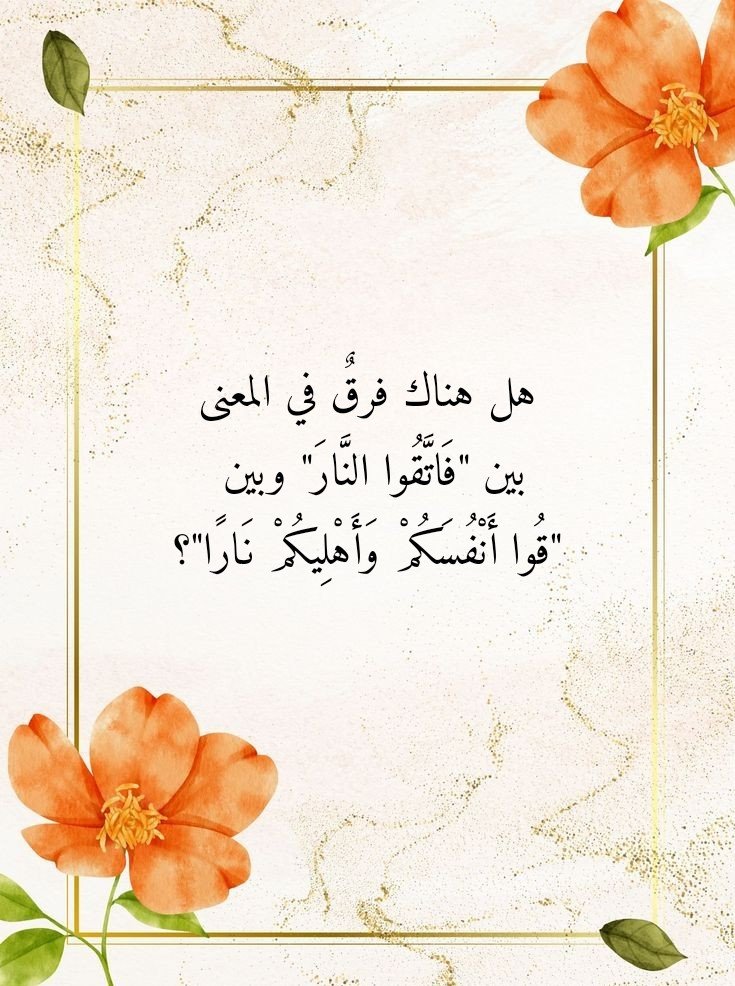 هل هناك فرقٌ في المعنى
بين "فَاتَّقُوا النَّارَ" وبين
"قُوا أَنْفُسَكُمْ وَأَهْلِيكُمْ نَارًا"؟